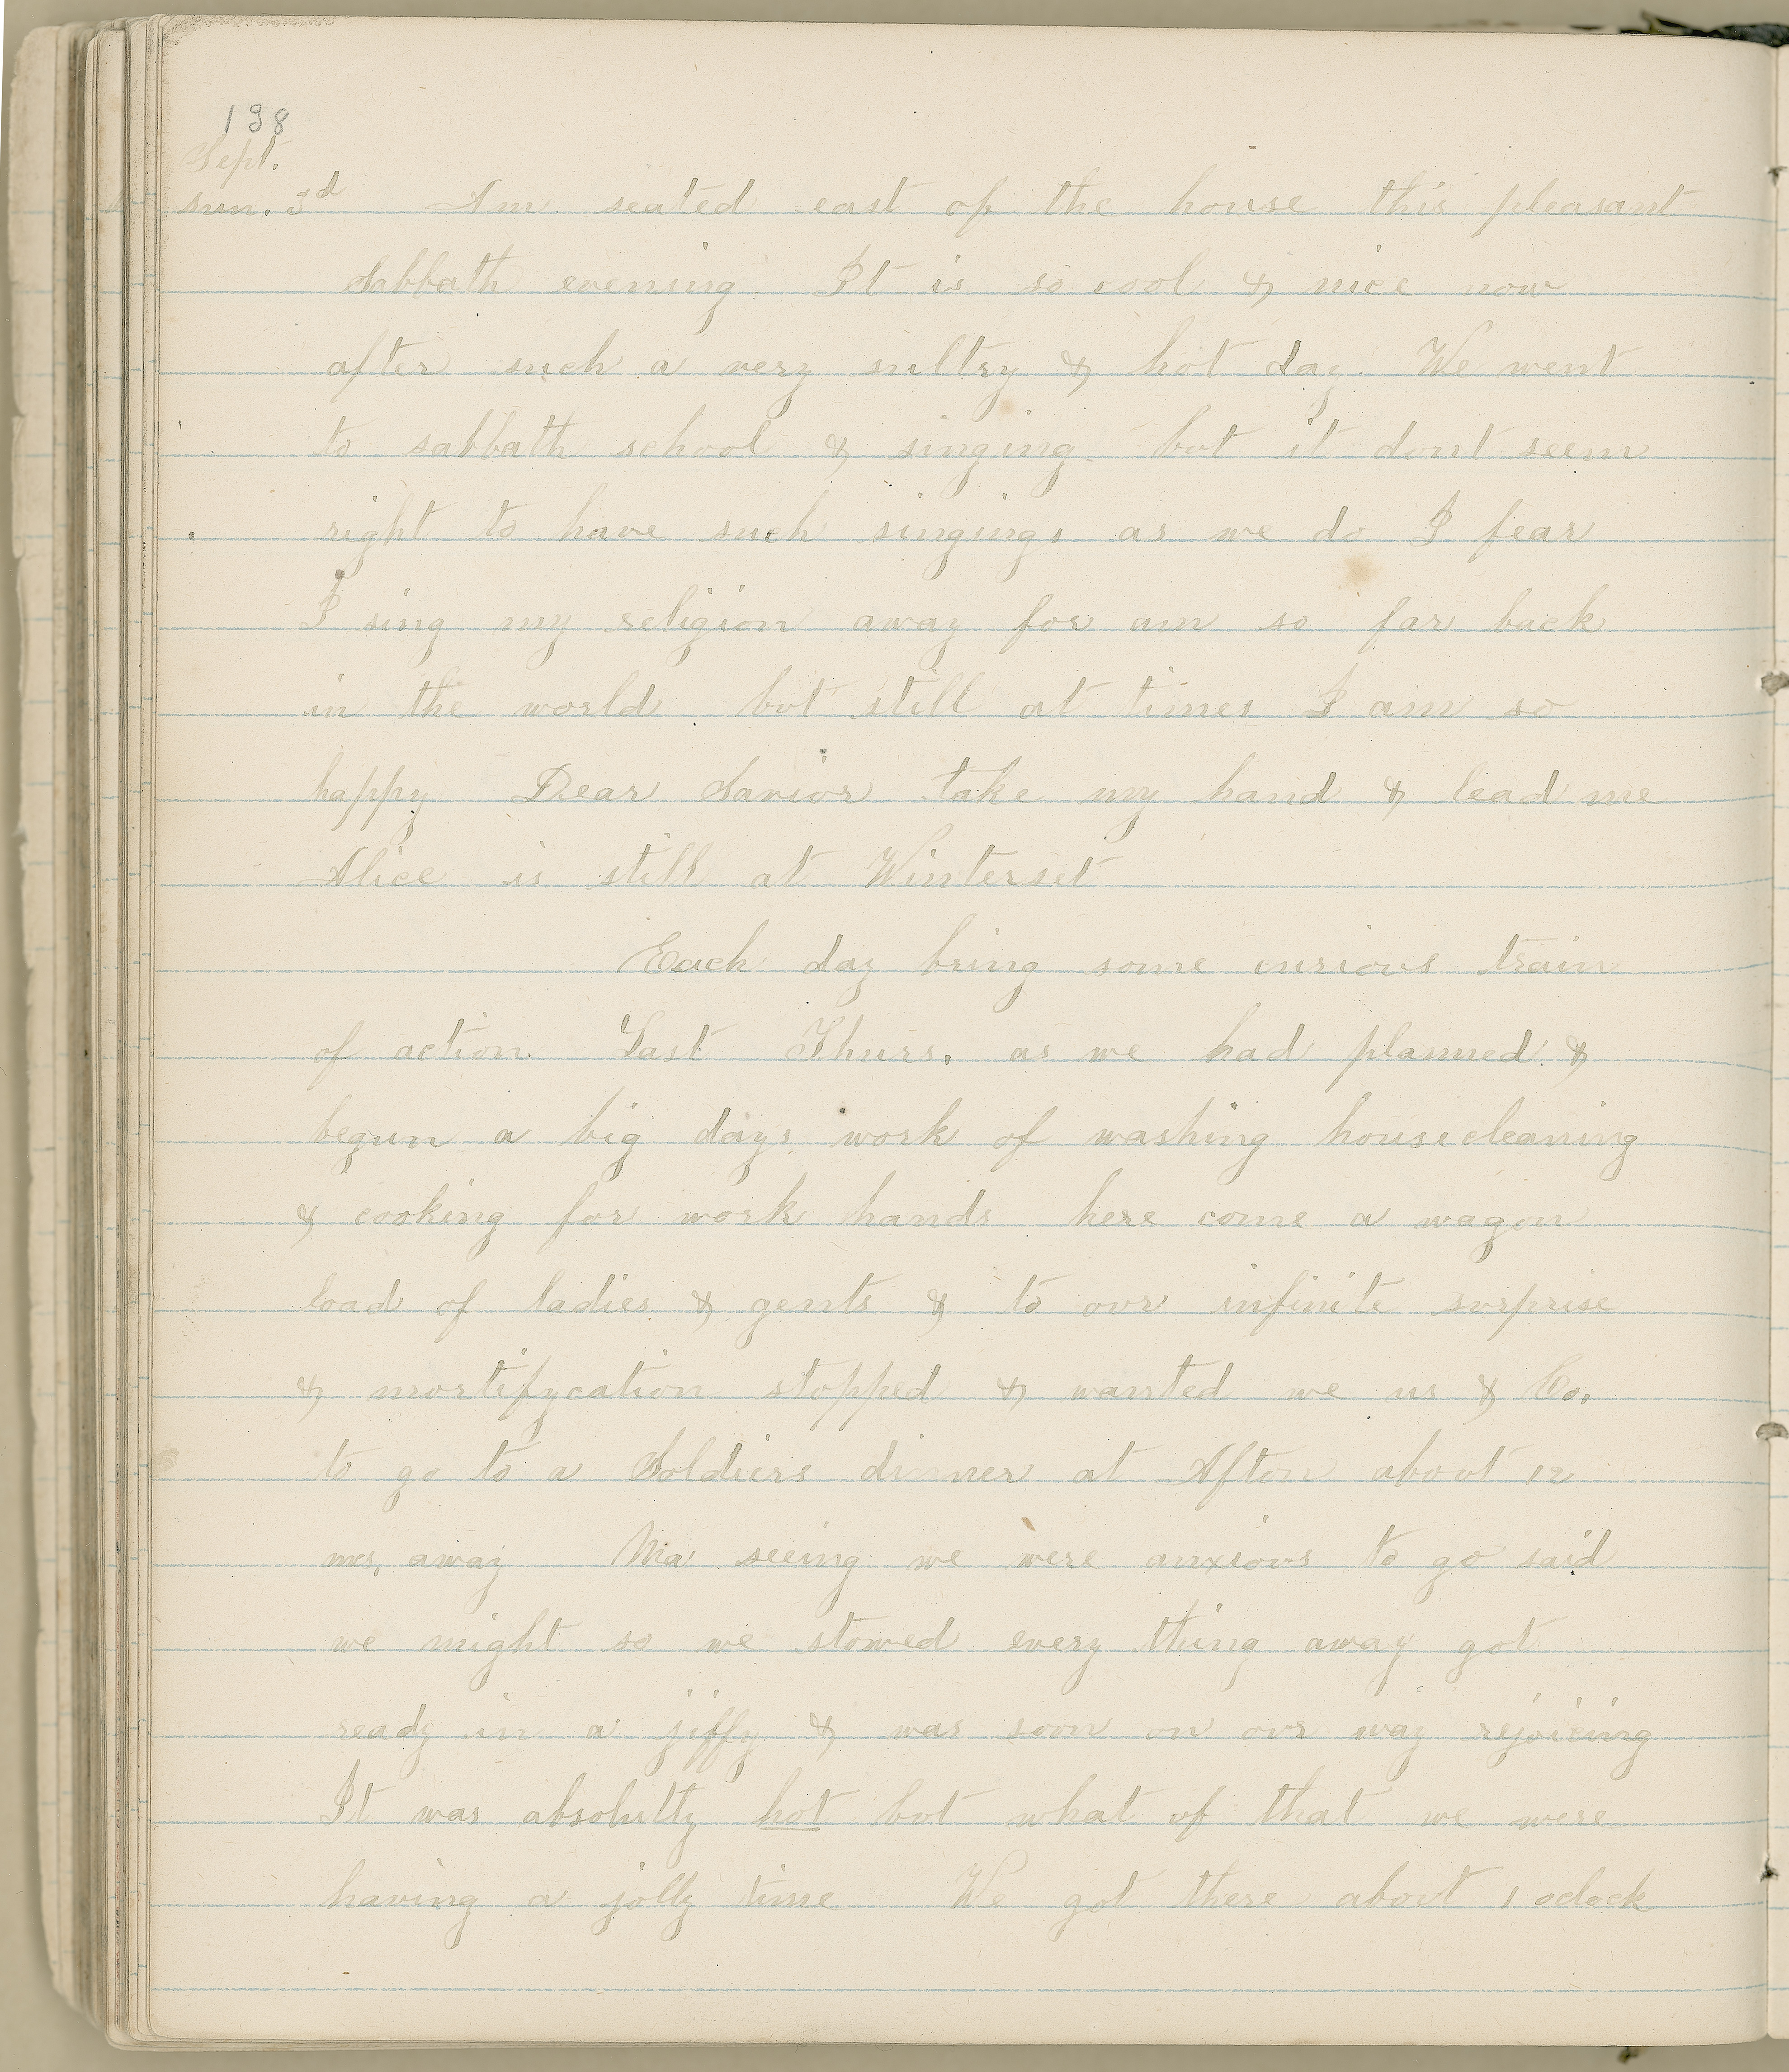 138
Sept.
Sun. 3d Am seated east of the house this pleasant
Sabbath evening. It is so cool & nice now
after such a very sultry & hot day. We went
to sabbath school & singing but it dont seem
right to have such singings as we do I fear
I sing my religion away for am so far back
in the world but still at times I am so
happy Dear Savior take my hand & lead me
Alice is still at Winterset
Each day bring some curious train
of action. Last Thurs. as we had planned &
begun a big days work of washing housecleaning
& cooking for work hands here come a wagon
load of ladies & gents & to our infinite surprise
& mortifycation stopped & wanted we us & Co.
to go to a Soldiers dinner at Afton about 12
mes, away Ma seeing we were anxious to go said
we might so we stowed every thing away got
ready in a jiffy & was soon on our way rejoicing
It was absolutly hot but what of that we were
having a jolly time We got there about 1 oclock